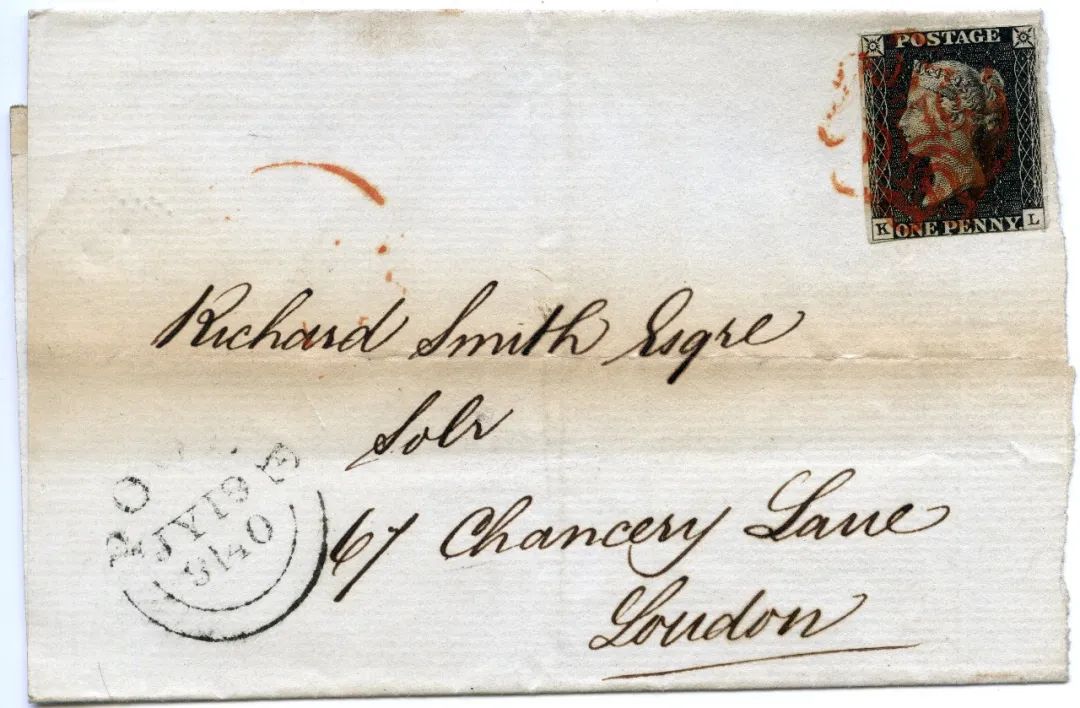 POSTAGE
K ONE PENNY L
Richard Smith Esqre
Solr
67 Chancery Lane
London
JY 19
1840